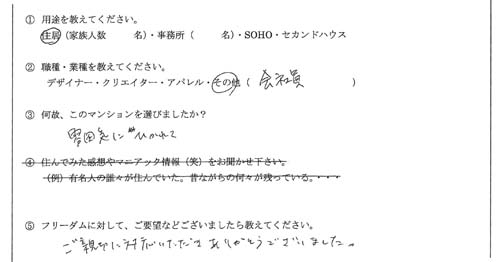 ① 用途を教えてください。
住居(家族人数　　　名)・事務所(　　　名)・SOHO・セカンドハウス
② 職種・業種を教えてください。
デザイナー・クリエイター・アパレル・その他(会社員)
③ 何故、このマンションを選びましたか?
雰囲気にひかれて
④ 住んでみた感想やマニアック情報(笑)をお聞かせ下さい。
(例)有名人の誰々が住んでいた。昔ながらの何々が残っている。・・・
⑤ フリーダムに対して、ご要望などございましたら教えてください。
ご親切に対応いただき ありがとうございました。